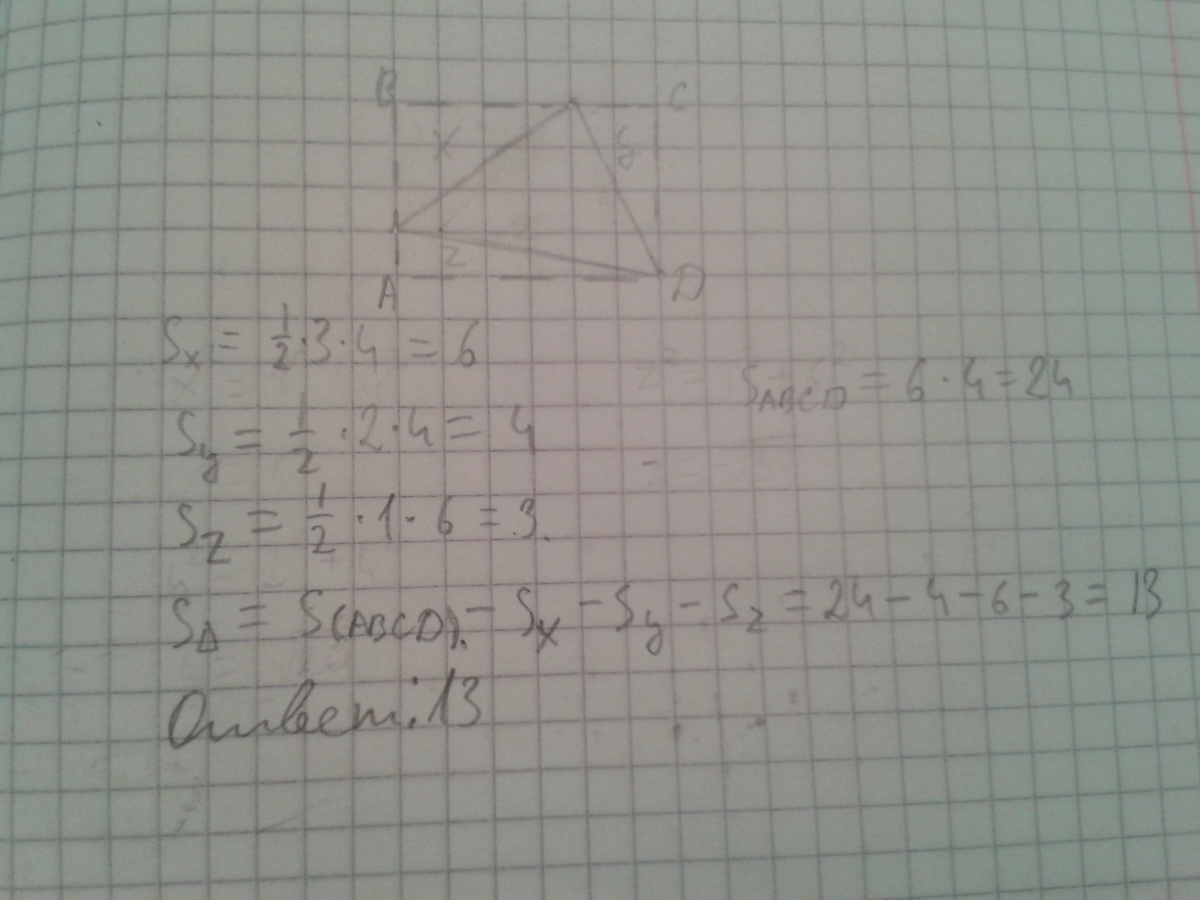 B C
x y
z
A D
Sx = 1/2 · 3 · 4 = 6
SABCD = 6 · 4 = 24
Sy = 1/2 · 2 · 4 = 4
Sz = 1/2 · 1 · 6 = 3.
SΔ = S(ABCD). - Sx - Sy - Sz = 24 - 4 - 6 - 3 = 13
Ответ: 13